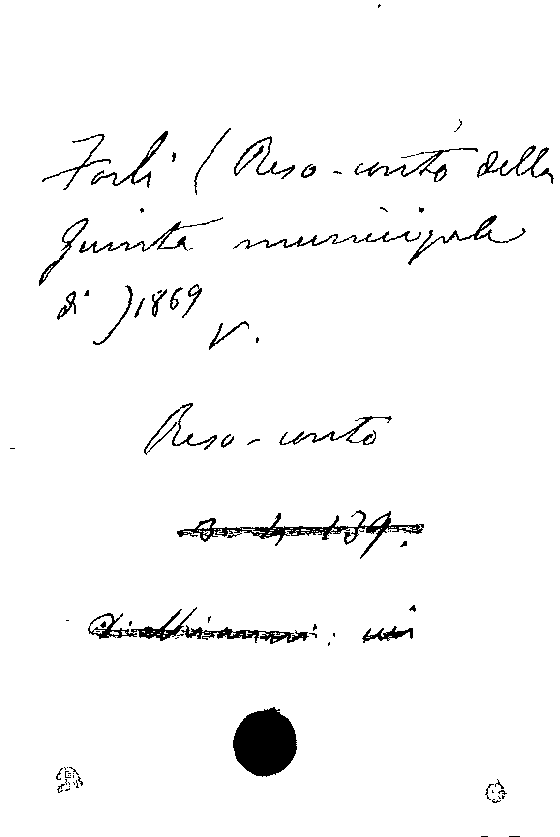 Forlì (Reso-conto della
Giunta municipale
di) 1869
V.
Reso-conto
3. 4. 139.